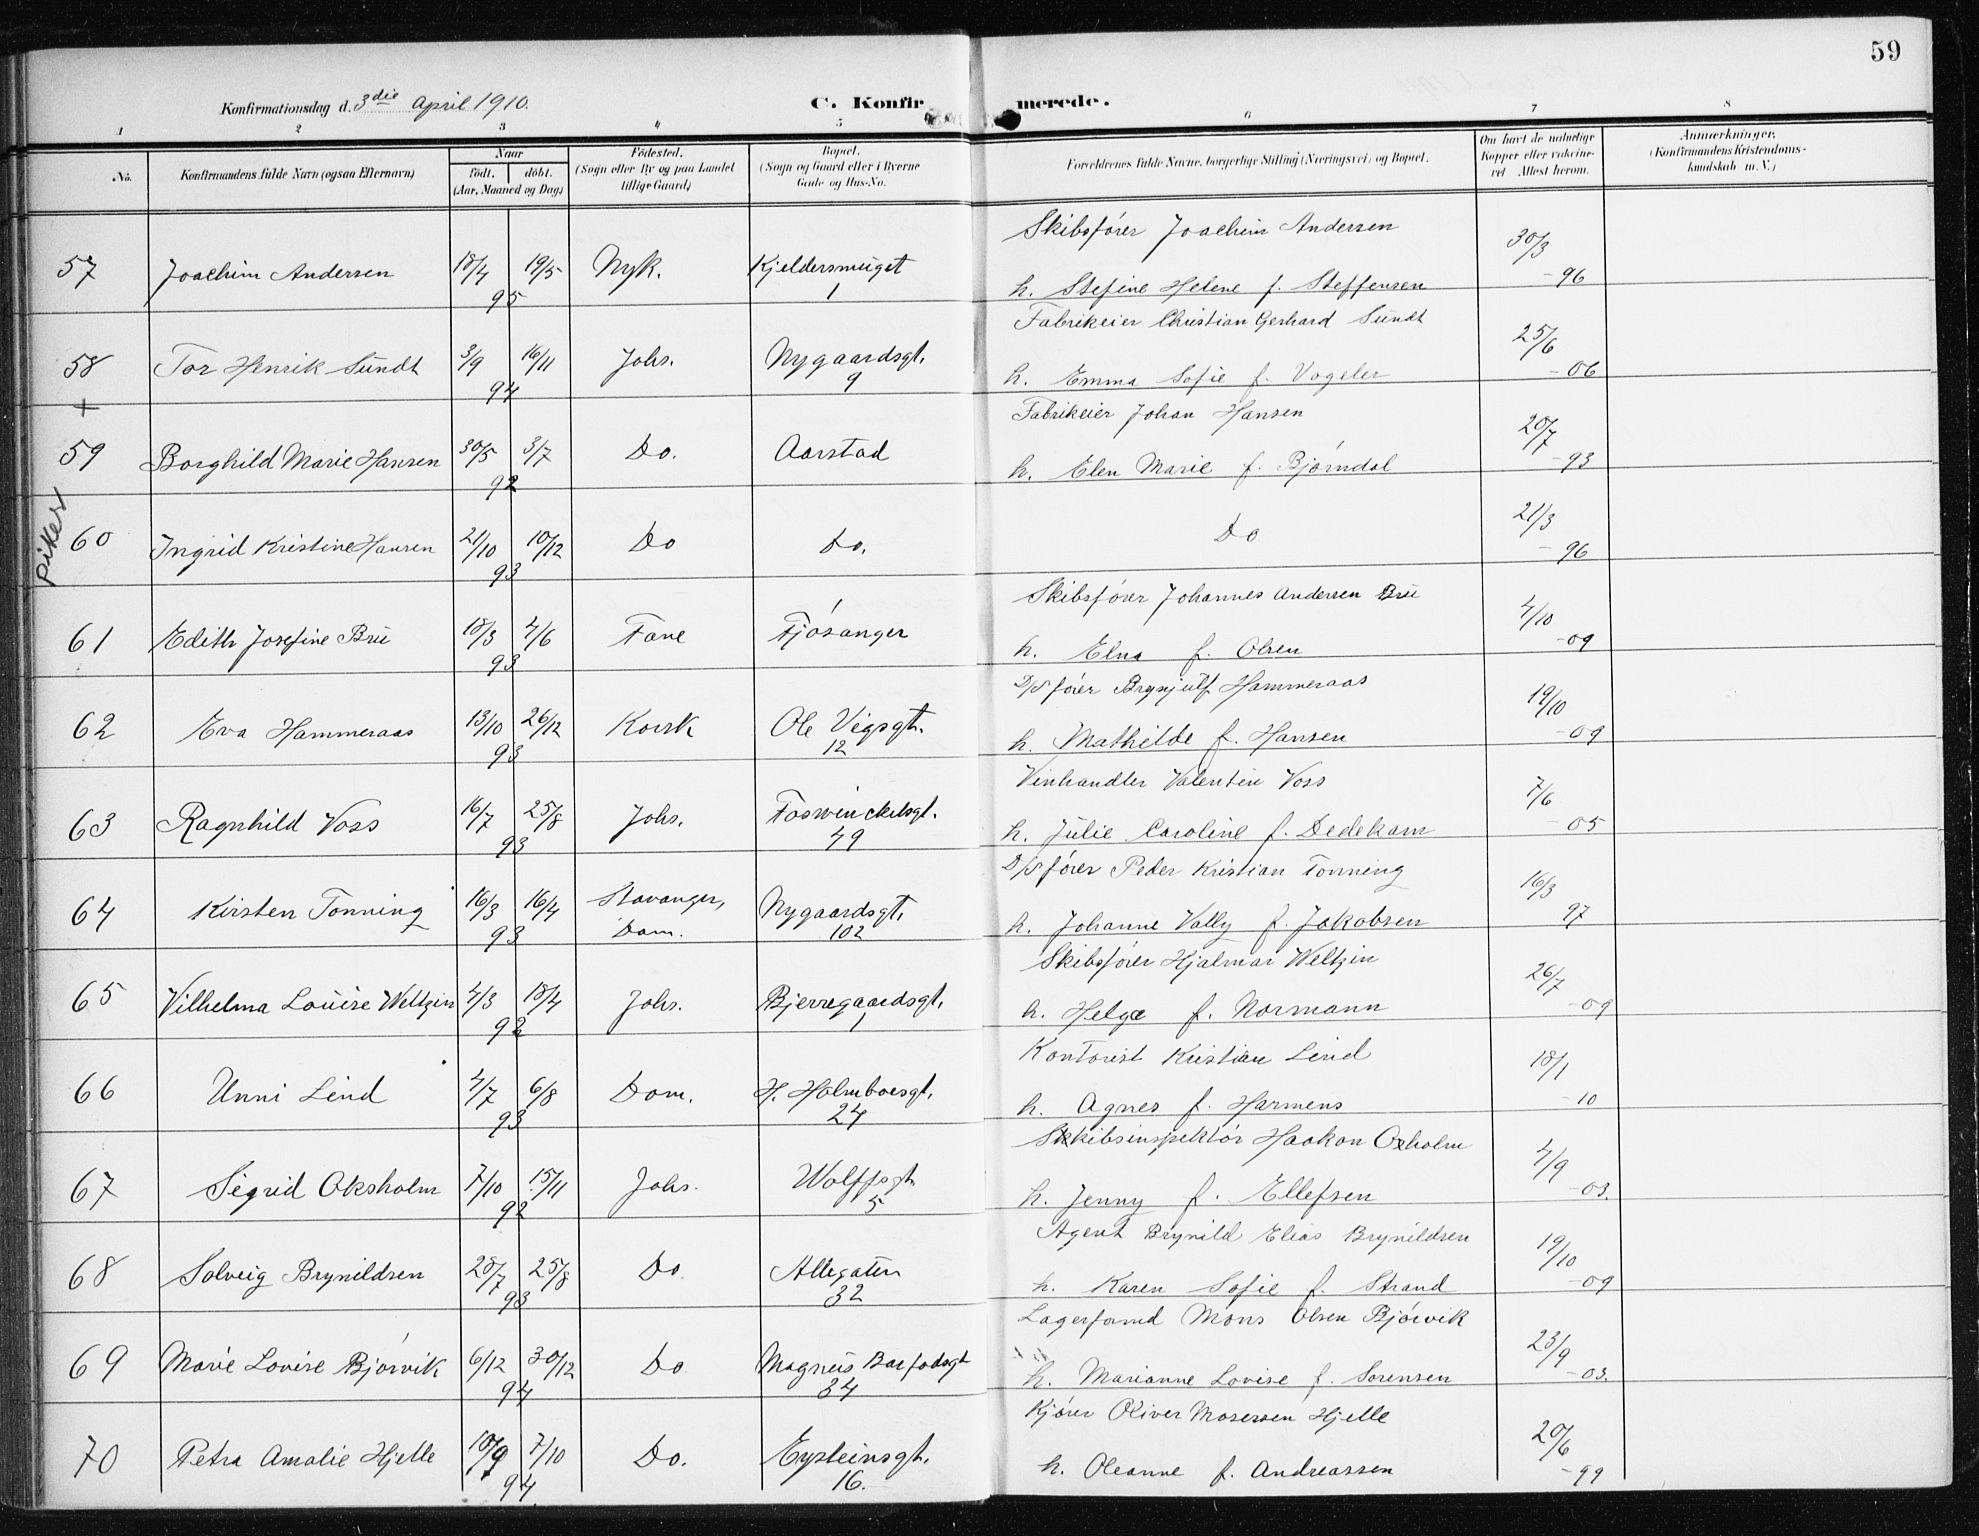 59
Konfirmationsdag d. 3die April 1910.
C. Konfirmerede.
1 2 3 4 5 6 7 8
No.
Konfirmandens fulde Navn (ogsaa Efternavn)
Naar
født. døbt.
(Aar, Maaned og Dag)
Fødested.
(Sogn eller By og paa Landet
tillige Gaard)
Bopæl.
(Sogn og Gaard eller i Byerne
Gade og Hus-No.
Forældrenes fulde Navne, borgerlige Stilling (Næringsvei) og Bopæl.
Om havt de naturlige
Kopper eller vakcine-
ret Attest herom.
Anmærkninger.
(Konfirmandens Kristendoms-
kundskab m.V.)
Skibsfører Joachim Andersen
57 Joachim Andersen 18/4 19/5 Nyk. Kjeldersmuget 30/3
95 1 h. Stefine Helene f. Steffensen -96
Fabrikeier Christian Gerhard Sundt
58 Tor Henrik Sundt 3/9 16/11 Johs. Nygaardsgt. 25/6
94 9 h. Emma Sofie f. Vogeler -06
+
Fabrikeier Johan Hansen
59 Borghild Marie Hansen 30/5 3/7 Do. Aarstad 20/7
92 h. Elen Marie f. Bjørndal -93
piker
60 Ingrid Kristine Hansen 21/10 10/12 Do Do. Do 21/3
93 -96
Skibsfører Johannes Andersen Bru
61 Edith Josefine Bru 18/3 4/6 Fane Fjøsanger 4/10
93 h. Elna f. Olsen -09
D/S fører Brynjulf Hammeraas
62 Eva Hammeraas 13/10 26/12 Korsk Ole Vigsgt. 19/10
93 12 h. Mathilde f. Hansen -09
Vinhandler Valentin Voss
63 Ragnhild Voss 16/7 25/8 Johs. Foswinckelsgt. 7/6
93 49 h. Julie Caroline f. Dedekam -05
D/S fører Peder Kristian Tonning
64 Kirsten Tonning 16/3 16/4 Stavanger, Nygaardsgt. 16/3
93 Dom. 102 h. Johanne Vally f. Jakobsen 97
Skibsfører Hjalmar Weltzin
65 Vilhelma Louise Weltzin 4/3 18/4 Johs. Bjerregaardsgt. 26/7
92 1 h. Helga f. Normann -09
Kontorist Kristian Lind
66 Unni Lind 4/7 6/8 Dom. H. Holmboesgt. 18/1
93 24 h. Agnes f. Harmens -10
Skibsinspektør Haakon Oxholm
67 Sigrid Oksholm 7/10 15/11 Johs. Wolffsgt. 4/9
92 5 h. Jenny f. Ellefsen -03.
Agent Brynild Elias Brynildsen
68 Solveig Brynildsen 28/7 25/8 Do. Allegaten 19/10
93 32 h. Karen Sofie f. Strand -09
Lagerformd Mons Olsen Bjørvik
69 Marie Lovise Bjørvik 6/12 30/12 Do Magnus Barfodsgt 23/9
94 34 h. Marianne Lovise f. Sorensen -03.
Kjører Oliver Mosessen Hjelle
70 Petra Amalie Hjelle 10/9 7/10 Do. Eysteinsgt. 20/6
94 16. h. Oleanne f. Andreassen -99